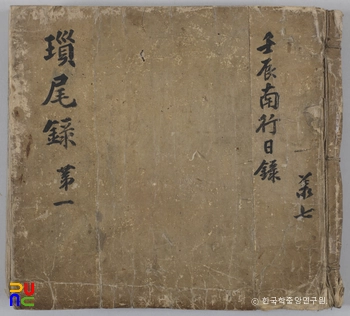 壬辰南行日錄
共七
瑣尾錄
第一
© 한국학중앙연구원